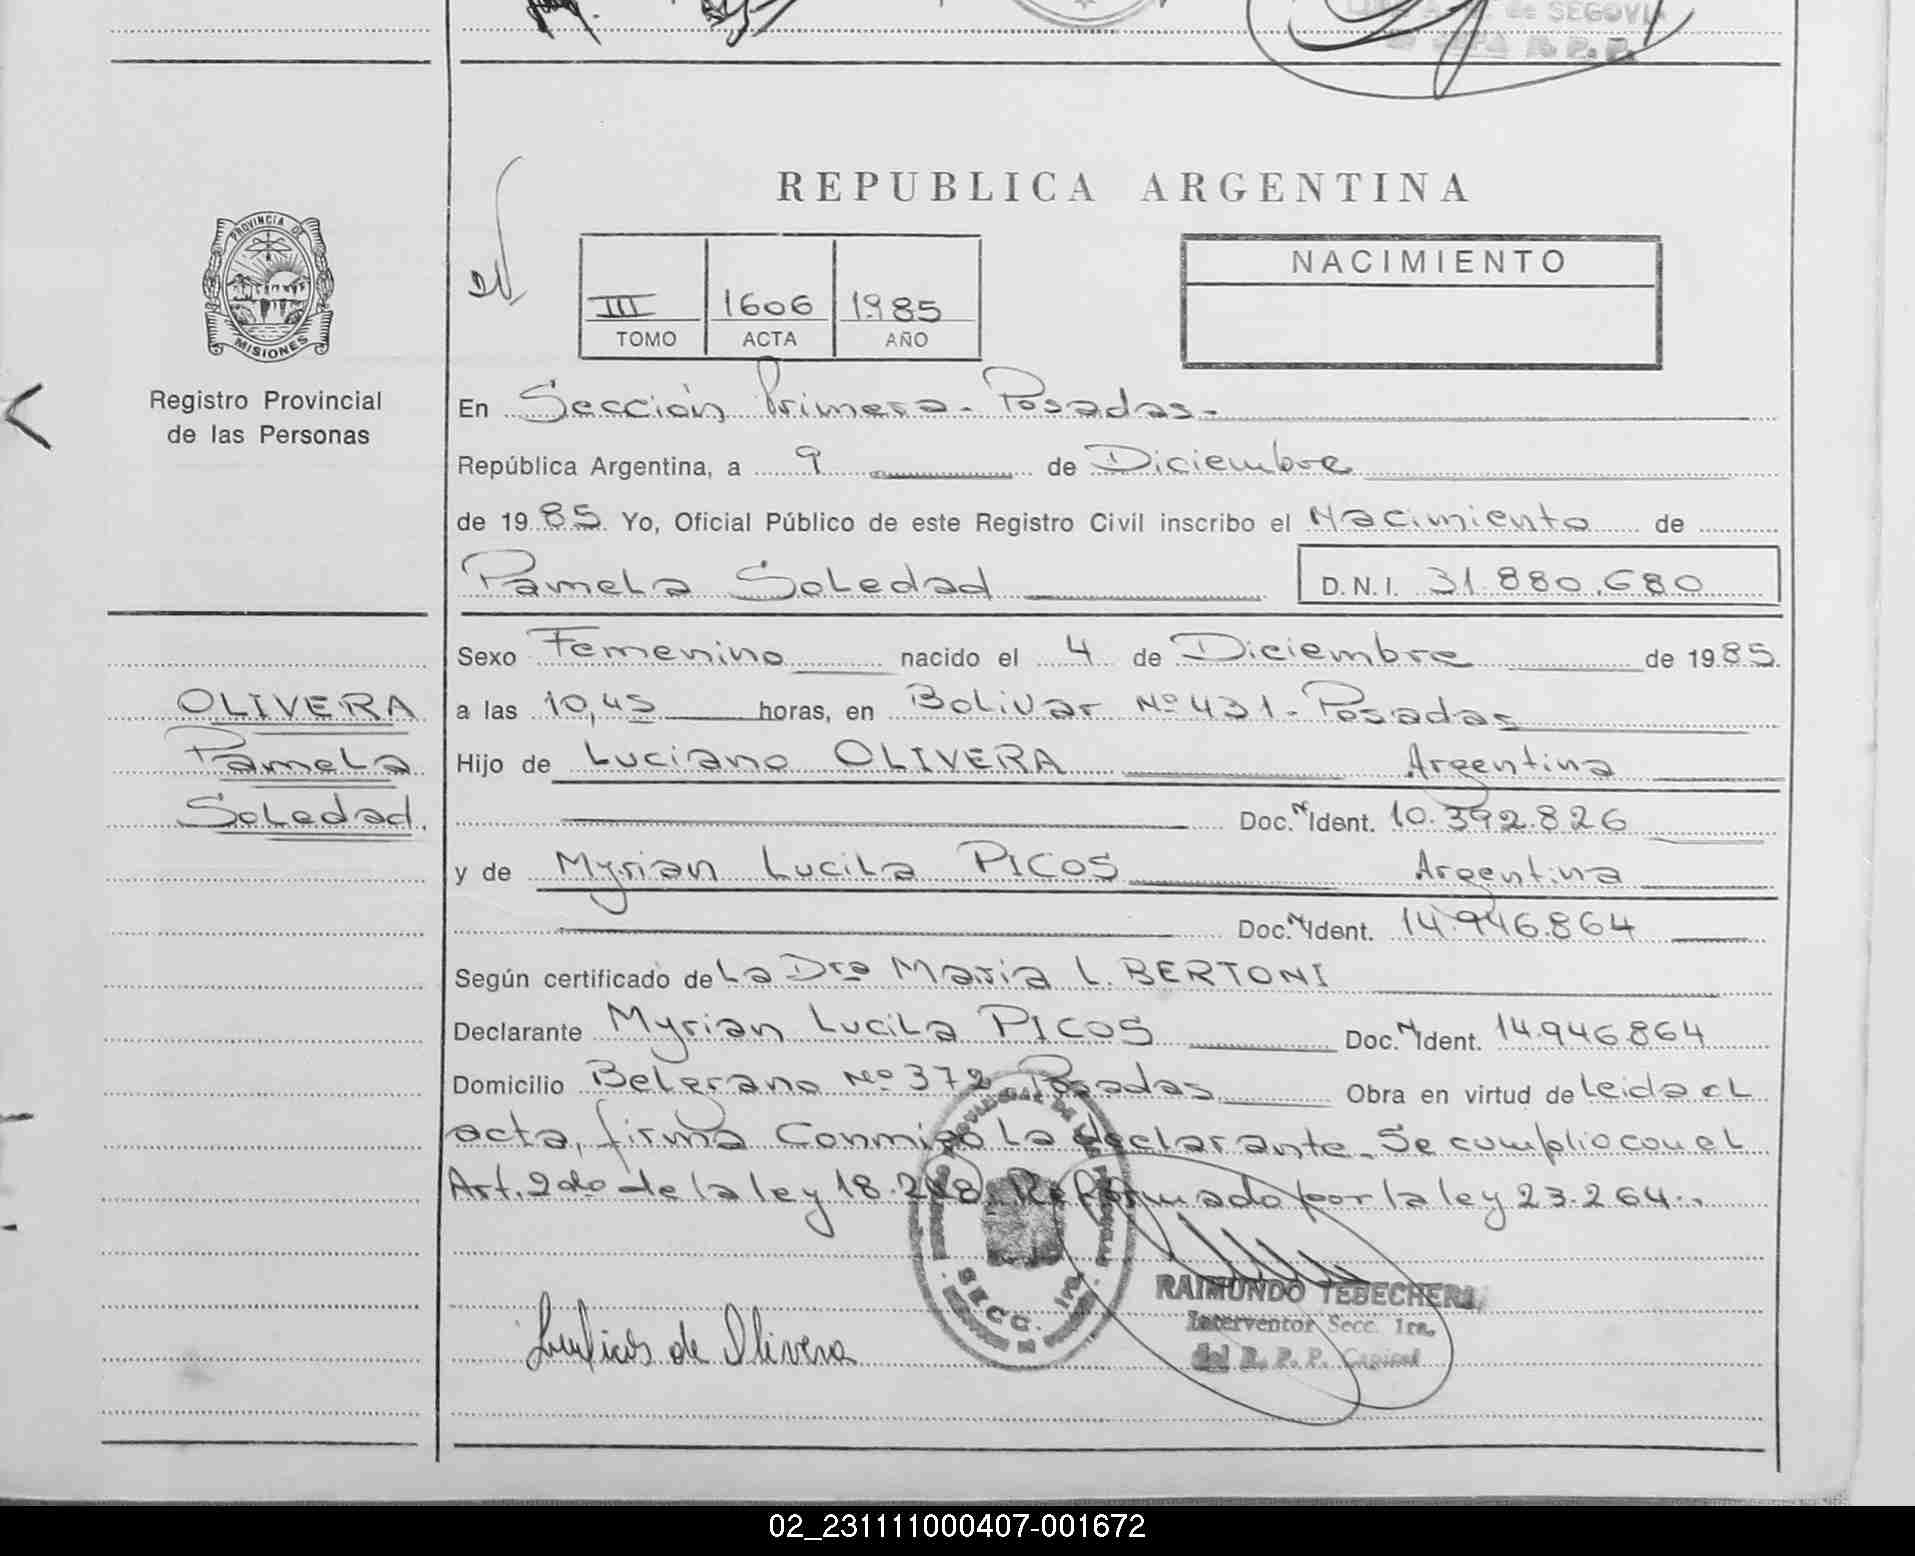 de SEGOVIA
R. P. P.
REPUBLICA ARGENTINA
PROVINCIA DE
MISIONES
Registro Provincial
de las Personas
III 1606 1985
TOMO ACTA AÑO
NACIMIENTO
En Sección Primera - Posadas -
República Argentina, a 9 de Diciembre
de 1985. Yo, Oficial Público de este Registro Civil inscribo el Nacimiento de
Pamela Soledad D.N.I. 31.880.680
OLIVERA
Pamela
Soledad.
Sexo Femenino nacido el 4 de Diciembre de 1985.
a las 10,45 horas, en Bolivar Nº 431 - Posadas
Hijo de Luciano OLIVERA Argentina
Doc. N Ident. 10.392.826
y de Myrian Lucila PICOS Argentina
Doc. N Ident. 14.946.864
Según certificado de La Dra Maria L. BERTONI
Declarante Myrian Lucila PICOS Doc. N Ident. 14.946.864
Domicilio Belgrano Nº 372 Posadas Obra en virtud de leida el
acta, firma conmigo la declarante. Se cumplio con el
Art. 2do de la ley 18.248. Reformado por la ley 23.264.-
SECC. 1ra.
Picos de Olivera
RAIMUNDO TEBECHERI
Interventor Secc. 1ra.
del R. P. P. Capital
02_231111000407-001672